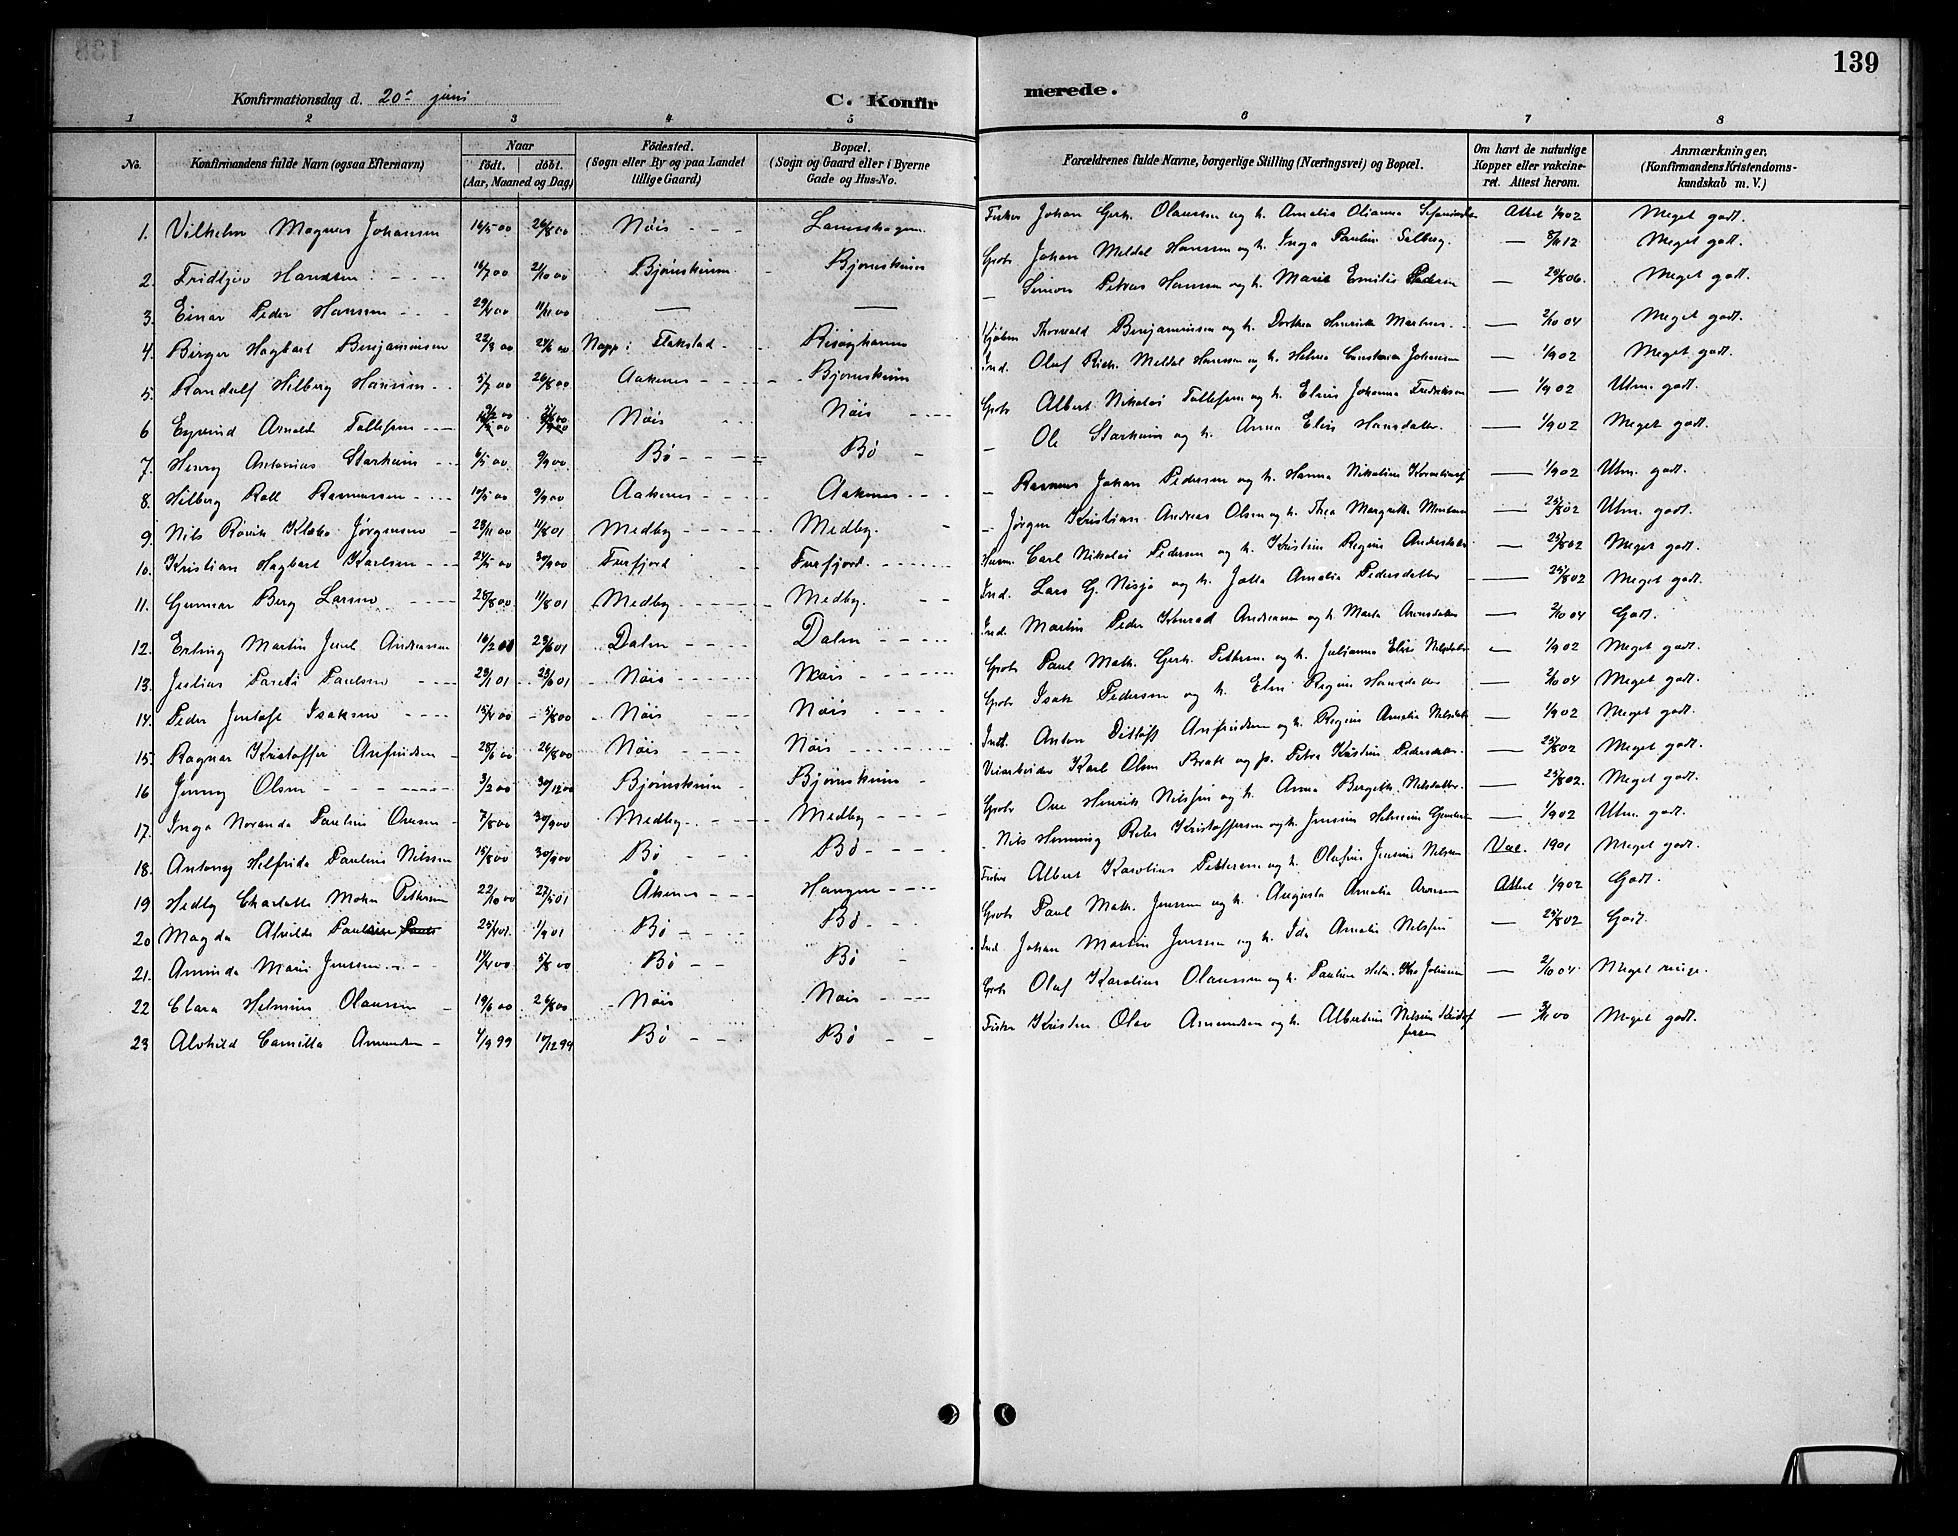 139
Konfirmationsdag d. 20de juni
C. Konfirmerede.
1 2 3 4 5 6 7 8
No.
Konfirmandens fulde Navn (ogsaa Efternavn)
Naar
født. døbt.
(Aar, Maaned og Dag)
Fødested.
(Sogn eller By og paa Landet
tillige Gaard)
Bopæl.
(Sogn og Gaard eller i Byerne
Gade og Hus-No.
Forældrenes fulde Navne, borgerlige Stilling (Næringsvei) og Bopæl.
Om havt de naturlige
Kopper eller vakcine-
ret. Attest herom.
Anmærkninger,
(Konfirmandens Kristendoms-
kundskab m. V.)
1. Vilhelm Magnus Johansen 16/5 00 26/8 00 Nöis Fisker Johan Gerh. Olaussen og h. Amalia Olianna Attest 1/9 02 Meget godt.
2. Fridtjov Hanssen 16/7 00 21/10 00 Bjørnskinn Bjørnskinn Gbr. Johan Meldal Hanssen og h. Inga Pauline Solberg. — 8/11 12 Meget godt.
3. Einar Peder Hanssen 29/4 00 11/11 00 — — Simon Petrus Hanssen og h. Marie Emilie Pedersen — Meget godt.
4. Birger Hagbart Benjaminsen 22/3 00 Napp i Flakstad Risøyhamn Thorvald Benjaminsen og h. Dorthea Henrikke — 2/10 04 Meget godt.
5. Randulf Hilberg Hanssen 5/7 00 26/8 00 Aakenes Bjørnskinn Ind. Oluf Rich. Meldal Hanssen og h. Helma Constance Johansen — 1/9 02 Meget godt.
6 Eyvind Arnoldt Tollefsen Nöis Nöis Albert Nikolai Tollefsen og h. Elise Johanna Fredriksen — 1/9 02 Utm. godt.
7. Henry Antonius Starheim 6/5 00 9/9 00 Bö Bö — Ole Starheim og h. Anna Elise Hansdatter — 1/9 02 Meget godt.
8. Hilberg Roll Rasmussen 10/5 00 9/9 00 Aakenes Aakenes — Rasmus Johan Pedersen og h. Hanna Nikoline — 1/9 02 Utm. godt.
9. Nils Rönik Klæbo Jørgensen 28/11 00 11/8 01 Medby Medby. — Jörgen Kristian Andreas Olsen og h. Thea Margrethe — 25/8 02 Utm. godt.
10. Kristian Hagbart Karlsen 24/5 00 30/9 00 Furfjord Furfjord. Carl Nikolai Pedersen og h. Kristine Regine — 25/8 02 Meget godt.
11. Gunnar Berg Larsen 28/8 00 11/8 01 Medby Medby. Ind. Lars G. Nisja og h. Jotta Amalia Pedersdatter — 25/8 02 Meget godt.
12. Erling Martin Juul Andreassen 16/2 01 29/6 01 Dalen Dalen Ind. Martin Peder Konrad Andreassen og h. Marta — 2/10 04 Godt.
13. Justius Pareli Paulsen 29/1 01 29/6 01 Nöis Nöis Gbr. Paul Math. Gerh. Pettersen og h. Julianna Elise — 1/9 02 Meget godt.
14. Peder Jentoft Isaksen 15/4 00 5/8 00 Nöis Nöis Gbr. Isak Pedersen og h. Elen Regine Hansdatter — 2/10 04 Meget godt.
15. Ragnar Kristoffer Anfindsen 26/8 00 Nöis Nöis Indt. Anton Ditlöft Anfindsen og h. Regine Amalia — 1/9 02 Meget godt.
16 Jenny Olsen 3/2 00 30/12 00 Bjørnskinn Bjørnskinn Veiarbeider Karl Olsen og p. Petra Kristine Pedersdatter. — 25/8 02 Meget godt.
17. Inga Noranda Pauline Ovesen 7/8 00 30/9 00 Medby Medby Gbr. Ove Henrik Nilssen og h. Anna Bergethe Nilsdatter. — 25/8 02. Meget godt.
18. Antony Helfrida Pauline Nilssen 15/8 00 Bö Bö Nils Henning Kristoffersen og h. Jensine Helmine — 1/9 02 Utm. godt.
19 Hedby Charlotte Mohn Pettersen 22/10 00 27/5 01 Åkenes Haugen Fisker Albert Karolius Pettersen og h. Olufine Jensine Nilssen Vac. 1901 Meget godt.
20 Magda Alvilde Paulsen 25/4 01. 1/9 01 Bö Bö Gbr. Paul Math. Jenssen og h. Augusta Amalia Attest 1/9 02 Godt.
21. Aminda Marie Jenssen 11/4 00 5/8 00 Bö Bö Ind Johan Martin Jenssen og h. Ida Amalie Nilssen — 25/8 02 Godt.
22 Clara Helmine Olaussen 19/6 00 26/8 00 Nöis Nöis Gbr. Oluf Karolius Olaussen og h. Pauline — 2/10 04 Meget ringe.
23 Alvhild Camilla Amundsen 4/9 99 10/12 99 Bö Bö Fisker Kristen Olav Amundsen og h. Albertine Nelsine — Meget godt.